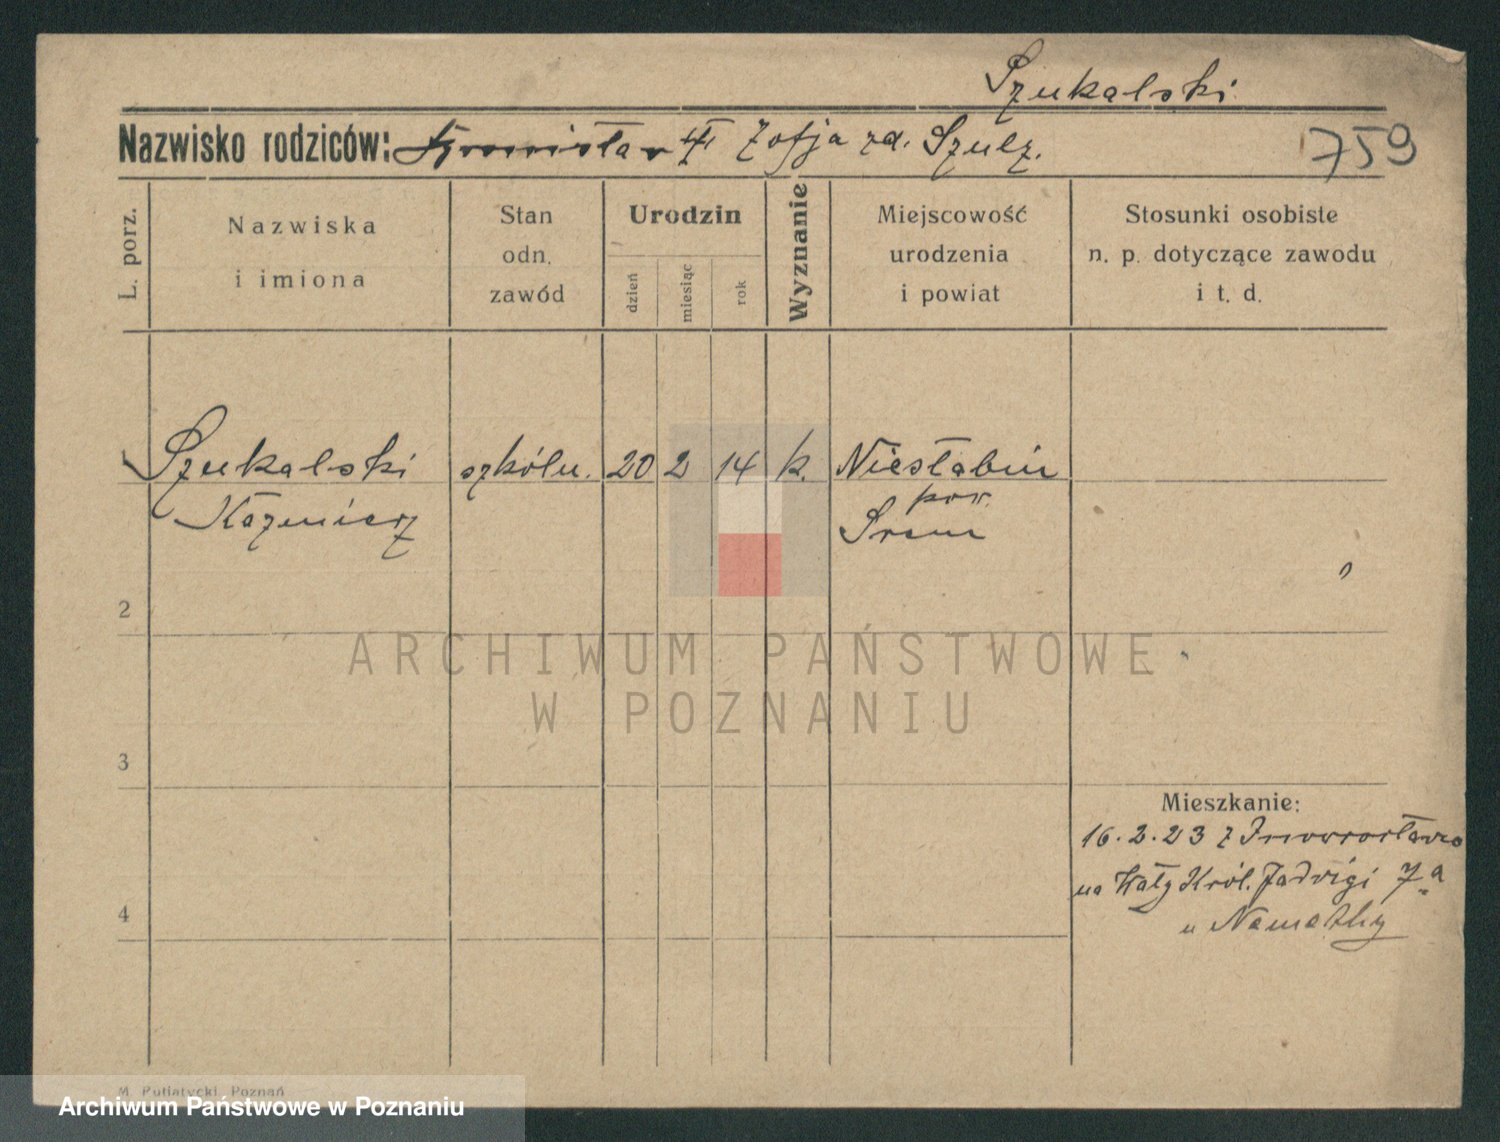 Szukalski
Nazwisko rodziców: Zofja zd. Szulz.
759
L. porz.
Nazwiska
i imiona
Stan
odn.
zawód
Urodzin
dzień
miesiąc
rok
Wyznanie
Miejscowość
urodzenia
i powiat
Stosunki osobiste
n. p. dotyczące zawodu
i t. d.
Szukalski szkóln. 20 2 14 k. Niesłabin
Kazmierz
pow.
Srem
2
ARCHIWUM PAŃSTWOWE
W POZNANIU
3
Mieszkanie:
16.2.23 z Inowrocławia
na Wały Król. Jadwigi 7a
u
4
M. Putiatycki, Poznań
Archiwum Państwowe w Poznaniu